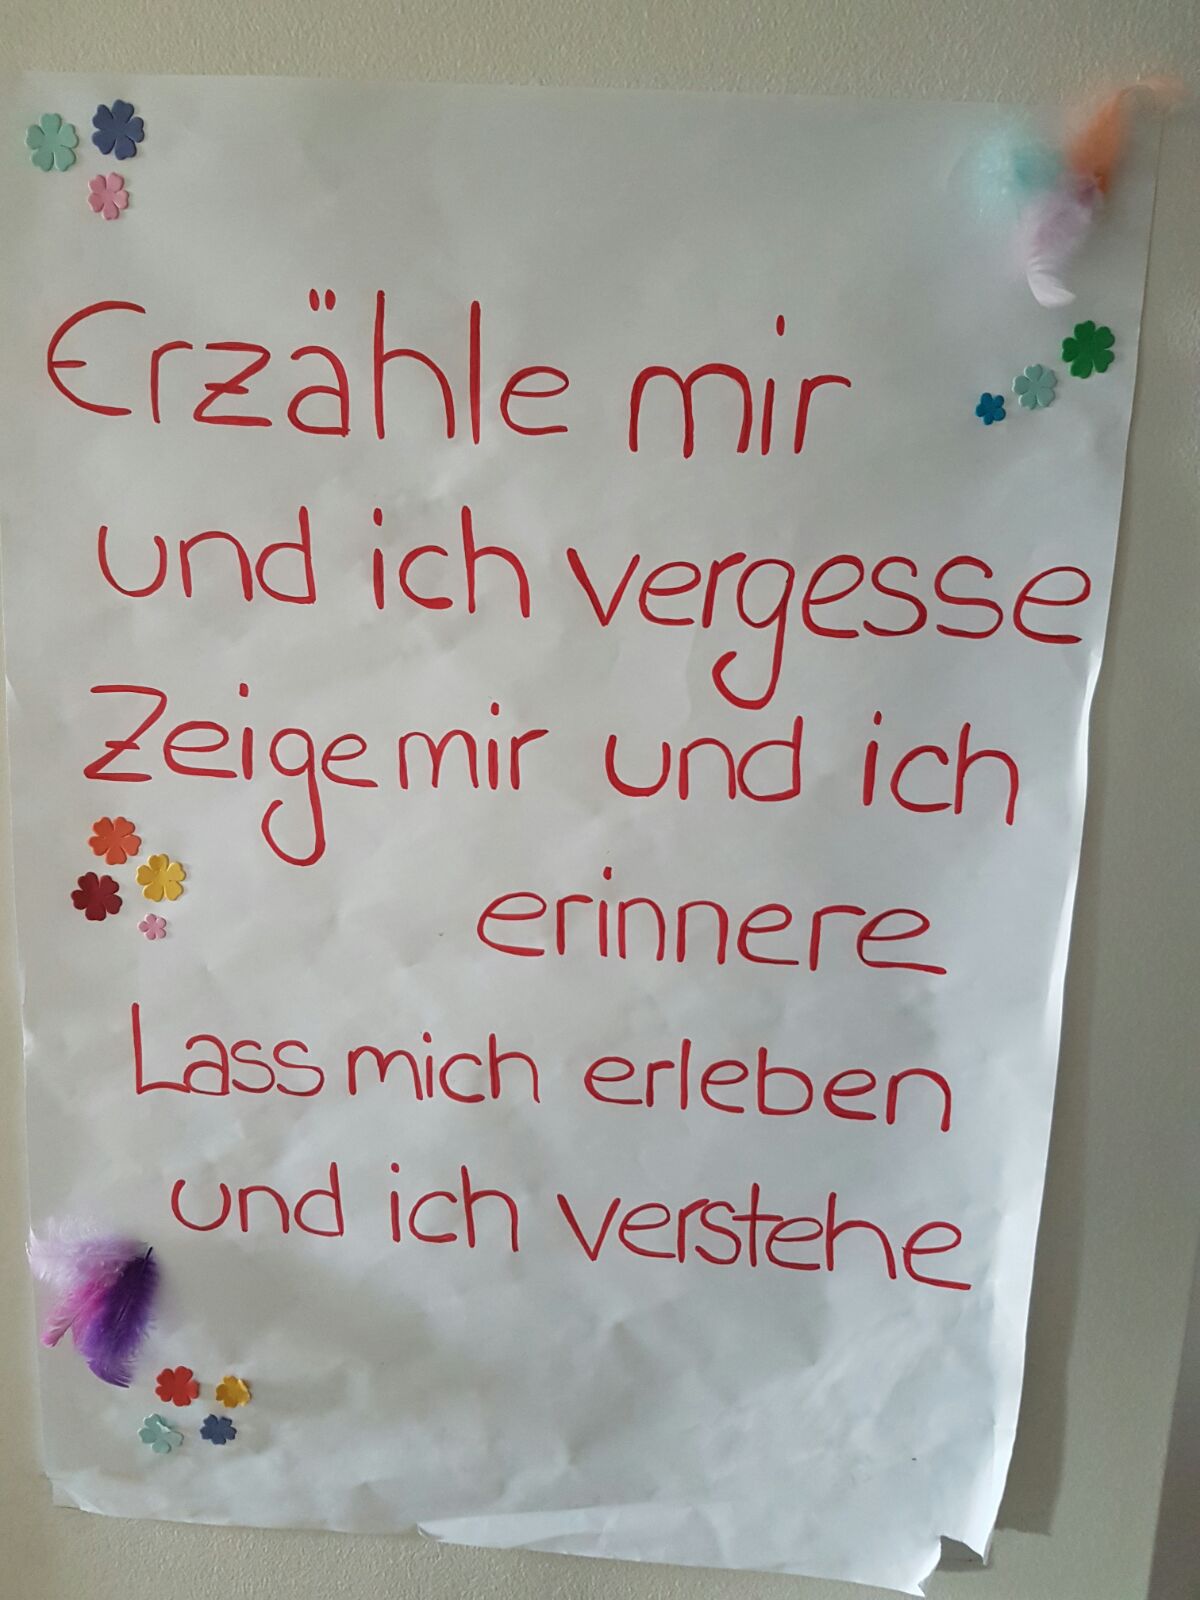 Erzähle mir
und ich vergesse
Zeige mir und ich
erinnere
Lass mich erleben
und ich verstehe